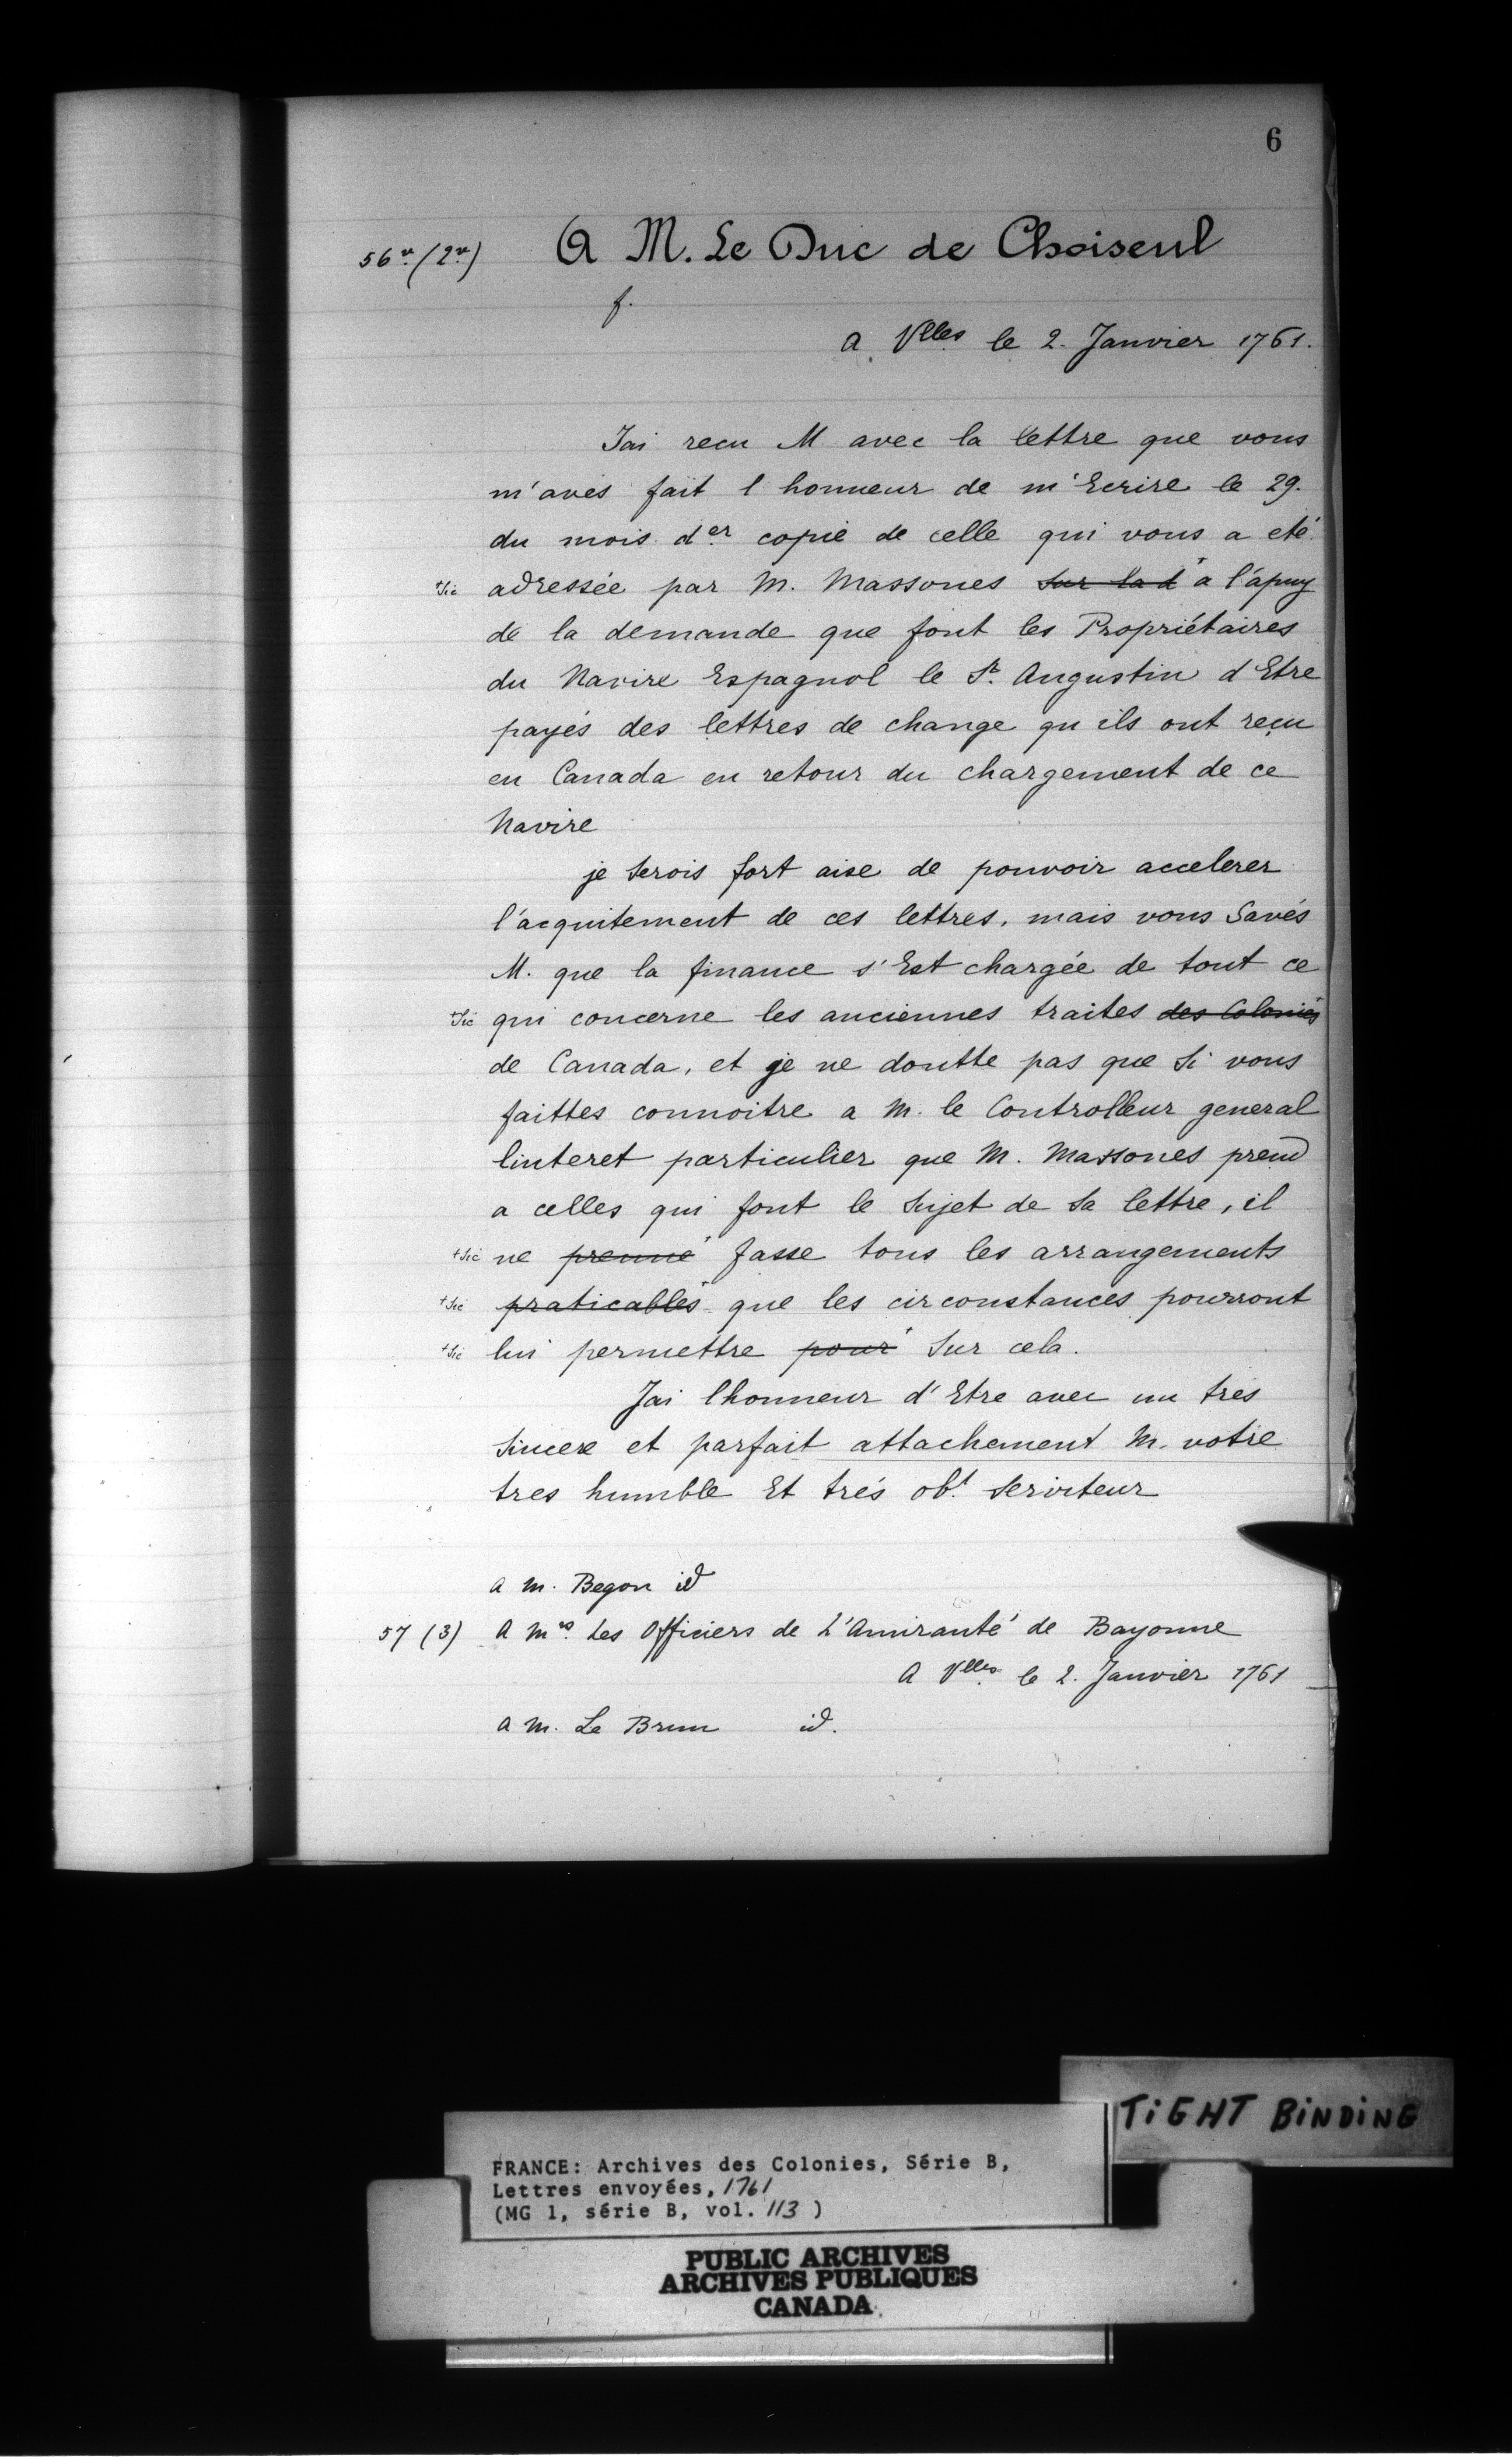 6
56vo (2vo) A M. Le Duc de Choiseul
f.
a Vlles le 2. Janvier 1761.
Jai recu M avec la lettre que vous
m'avés fait l honneur de m'Ecrire le 29.
du mois der copie de celle qui vous a eté
+Sic adressée par M. Massones ~~sur la d~~+ a l'apuy
de la demande que font les Propriétaires
du Navire Espagnol le St. Augustin d'Etre
payés des lettres de change qu ils ont reçu
en Canada en retour du chargement de ce
Navire
je serois fort aise de pouvoir accelerer
l'acquitement de ces lettres, mais vous Savés
M. que la finance s'Est chargée de tout ce
+Sic qui concerne les anciennes traites ~~des Colonies~~+
de Canada, et je ne doutte pas que si vous
faittes connoitre a M. le Controlleur general
linteret particulier que M. Massones prend
a celles qui font le sujet de sa lettre, il
+Sic ne ~~prenne~~+ fasse tous les arrangements
+Sic ~~praticables~~+ que les circonstances pourront
+Sic lui permettre ~~pour~~+ sur cela.
Jai lhonneur d'Etre avec un tres
sincere et parfait attachement M. votre
tres humble Et trés obt. serviteur
a M. Begon id
57 (3) A Mrs. Les Officiers de L'Amirauté de Bayonne
A Vlles le 2. Janvier 1761
a M. Le Brun id.
TiGHT BiNDiNG
FRANCE: Archives des Colonies, Série B,
Lettres envoyées, 1761
(MG 1, série B, vol. 113 )
PUBLIC ARCHIVES
ARCHIVES PUBLIQUES
CANADA